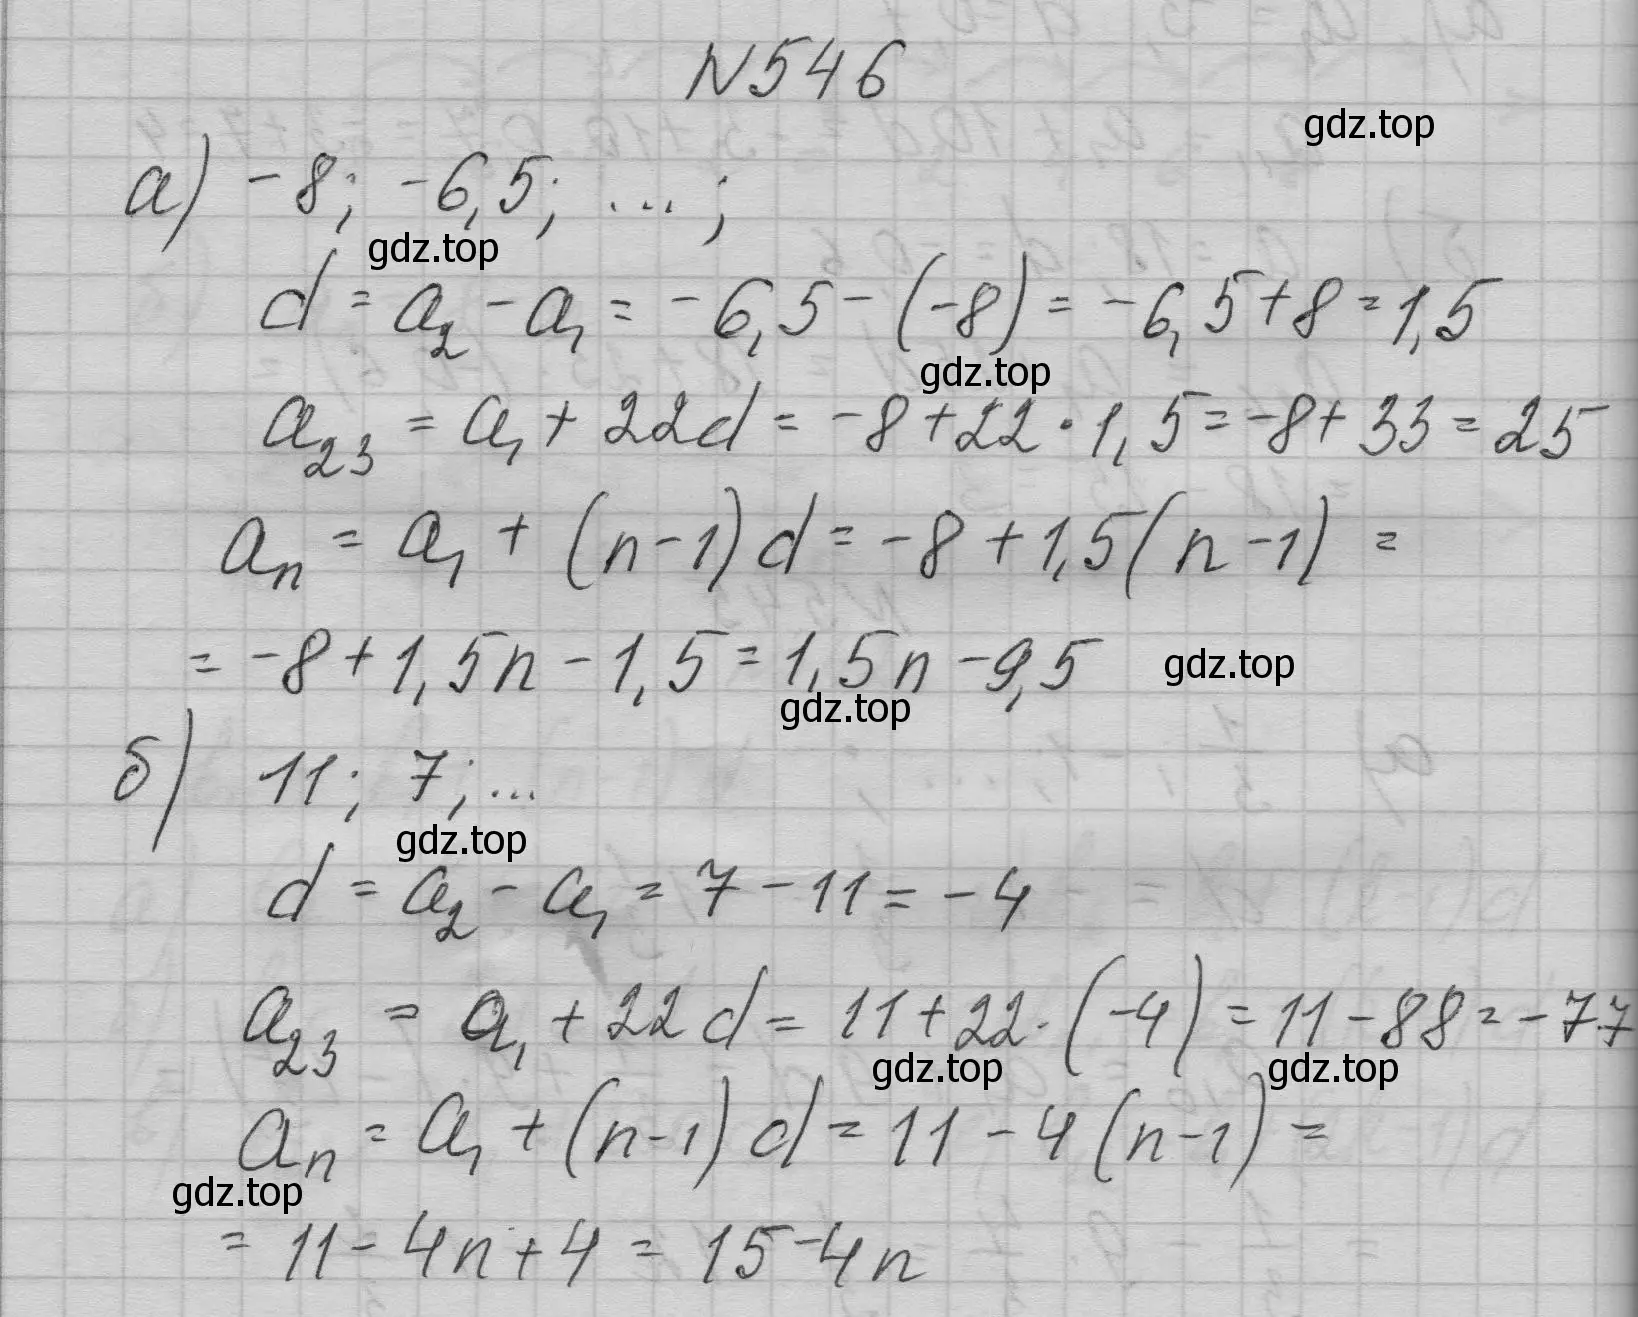 N546
gdz.top
а) -8; -6,5; ...;
gdz.top
d = a₂ - a₁ = -6,5 - (-8) = -6,5 + 8 = 1,5
gdz.top
a₂₃ = a₁ + 22d = -8 + 22 · 1,5 = -8 + 33 = 25
aₙ = a₁ + (n-1)d = -8 + 1,5(n-1) =
= -8 + 1,5n - 1,5 = 1,5n - 9,5
gdz.top
gdz.top
б) 11; 7; ...
gdz.top
d = a₂ - a₁ = 7 - 11 = -4
a₂₃ = a₁ + 22d = 11 + 22 · (-4) = 11 - 88 = -77
gdz.top
gdz.top
aₙ = a₁ + (n-1)d = 11 - 4(n-1) =
gdz.top
= 11 - 4n + 4 = 15 - 4n